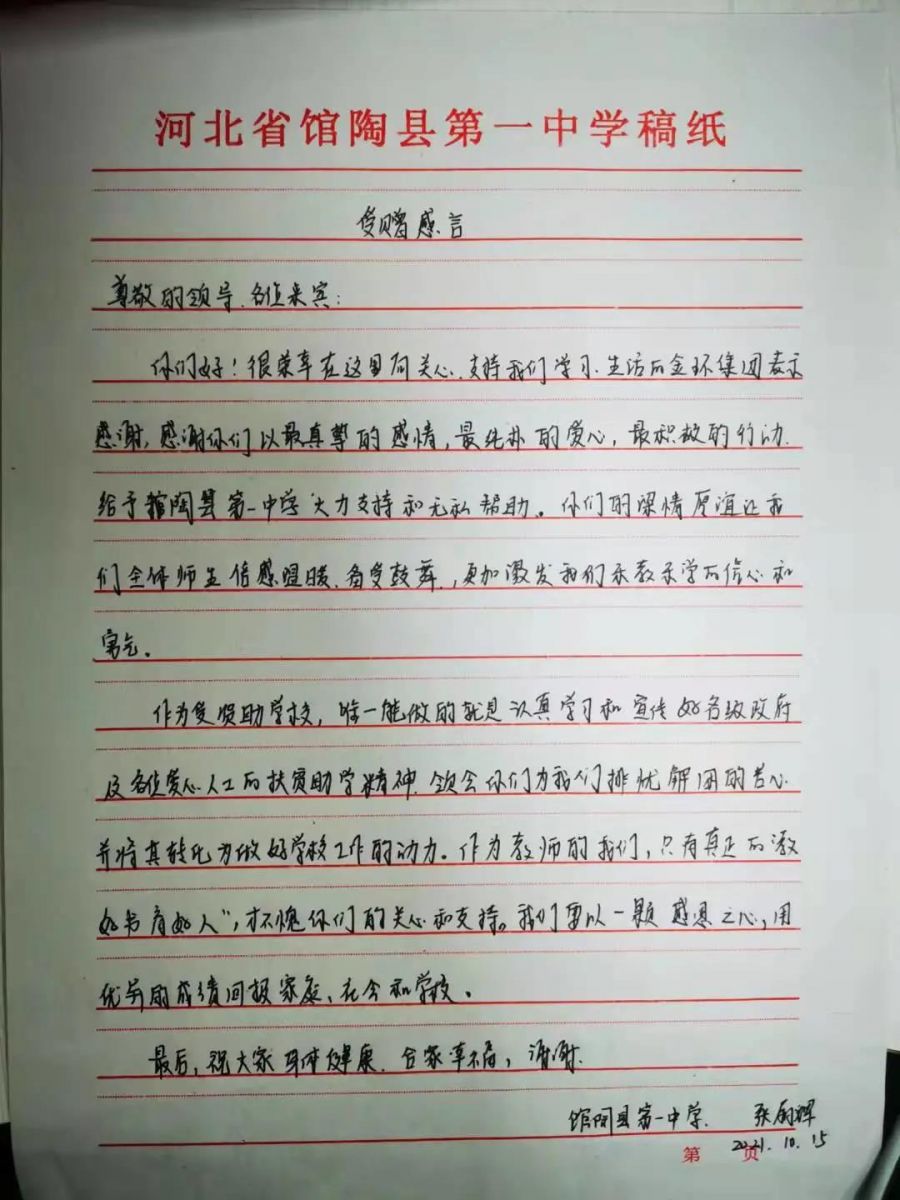 河北省馆陶县第一中学稿纸
受赠感言
尊敬的领导、各位来宾:
你们好!很荣幸在这里向关心、支持我们学习、生活的金环集团表示
感谢,感谢你们以最真挚的感情,最纯朴的爱心,最积极的行动.
给予馆陶县第一中学大力支持和无私帮助。你们的深情厚谊让我
们全体师生倍感温暖、备受鼓舞,更加激发我们乐教乐学的信心和
勇气。
作为受资助学校,唯一能做的就是认真学习和宣传好各级政府
及各位爱心人士的扶贫助学精神.领会你们为我们排忧解困的苦心
并将其转化为做好学校工作的动力。作为教师的我们,只有真正的"教
好书育好人",才不愧你们的关心和支持。我们要以一颗感恩之心,用
优异的成绩回报家庭、社会和学校。
最后,祝大家身体健康.合家幸福,谢谢.
馆陶县第一中学. 张 辉
2021.10.15
第 页